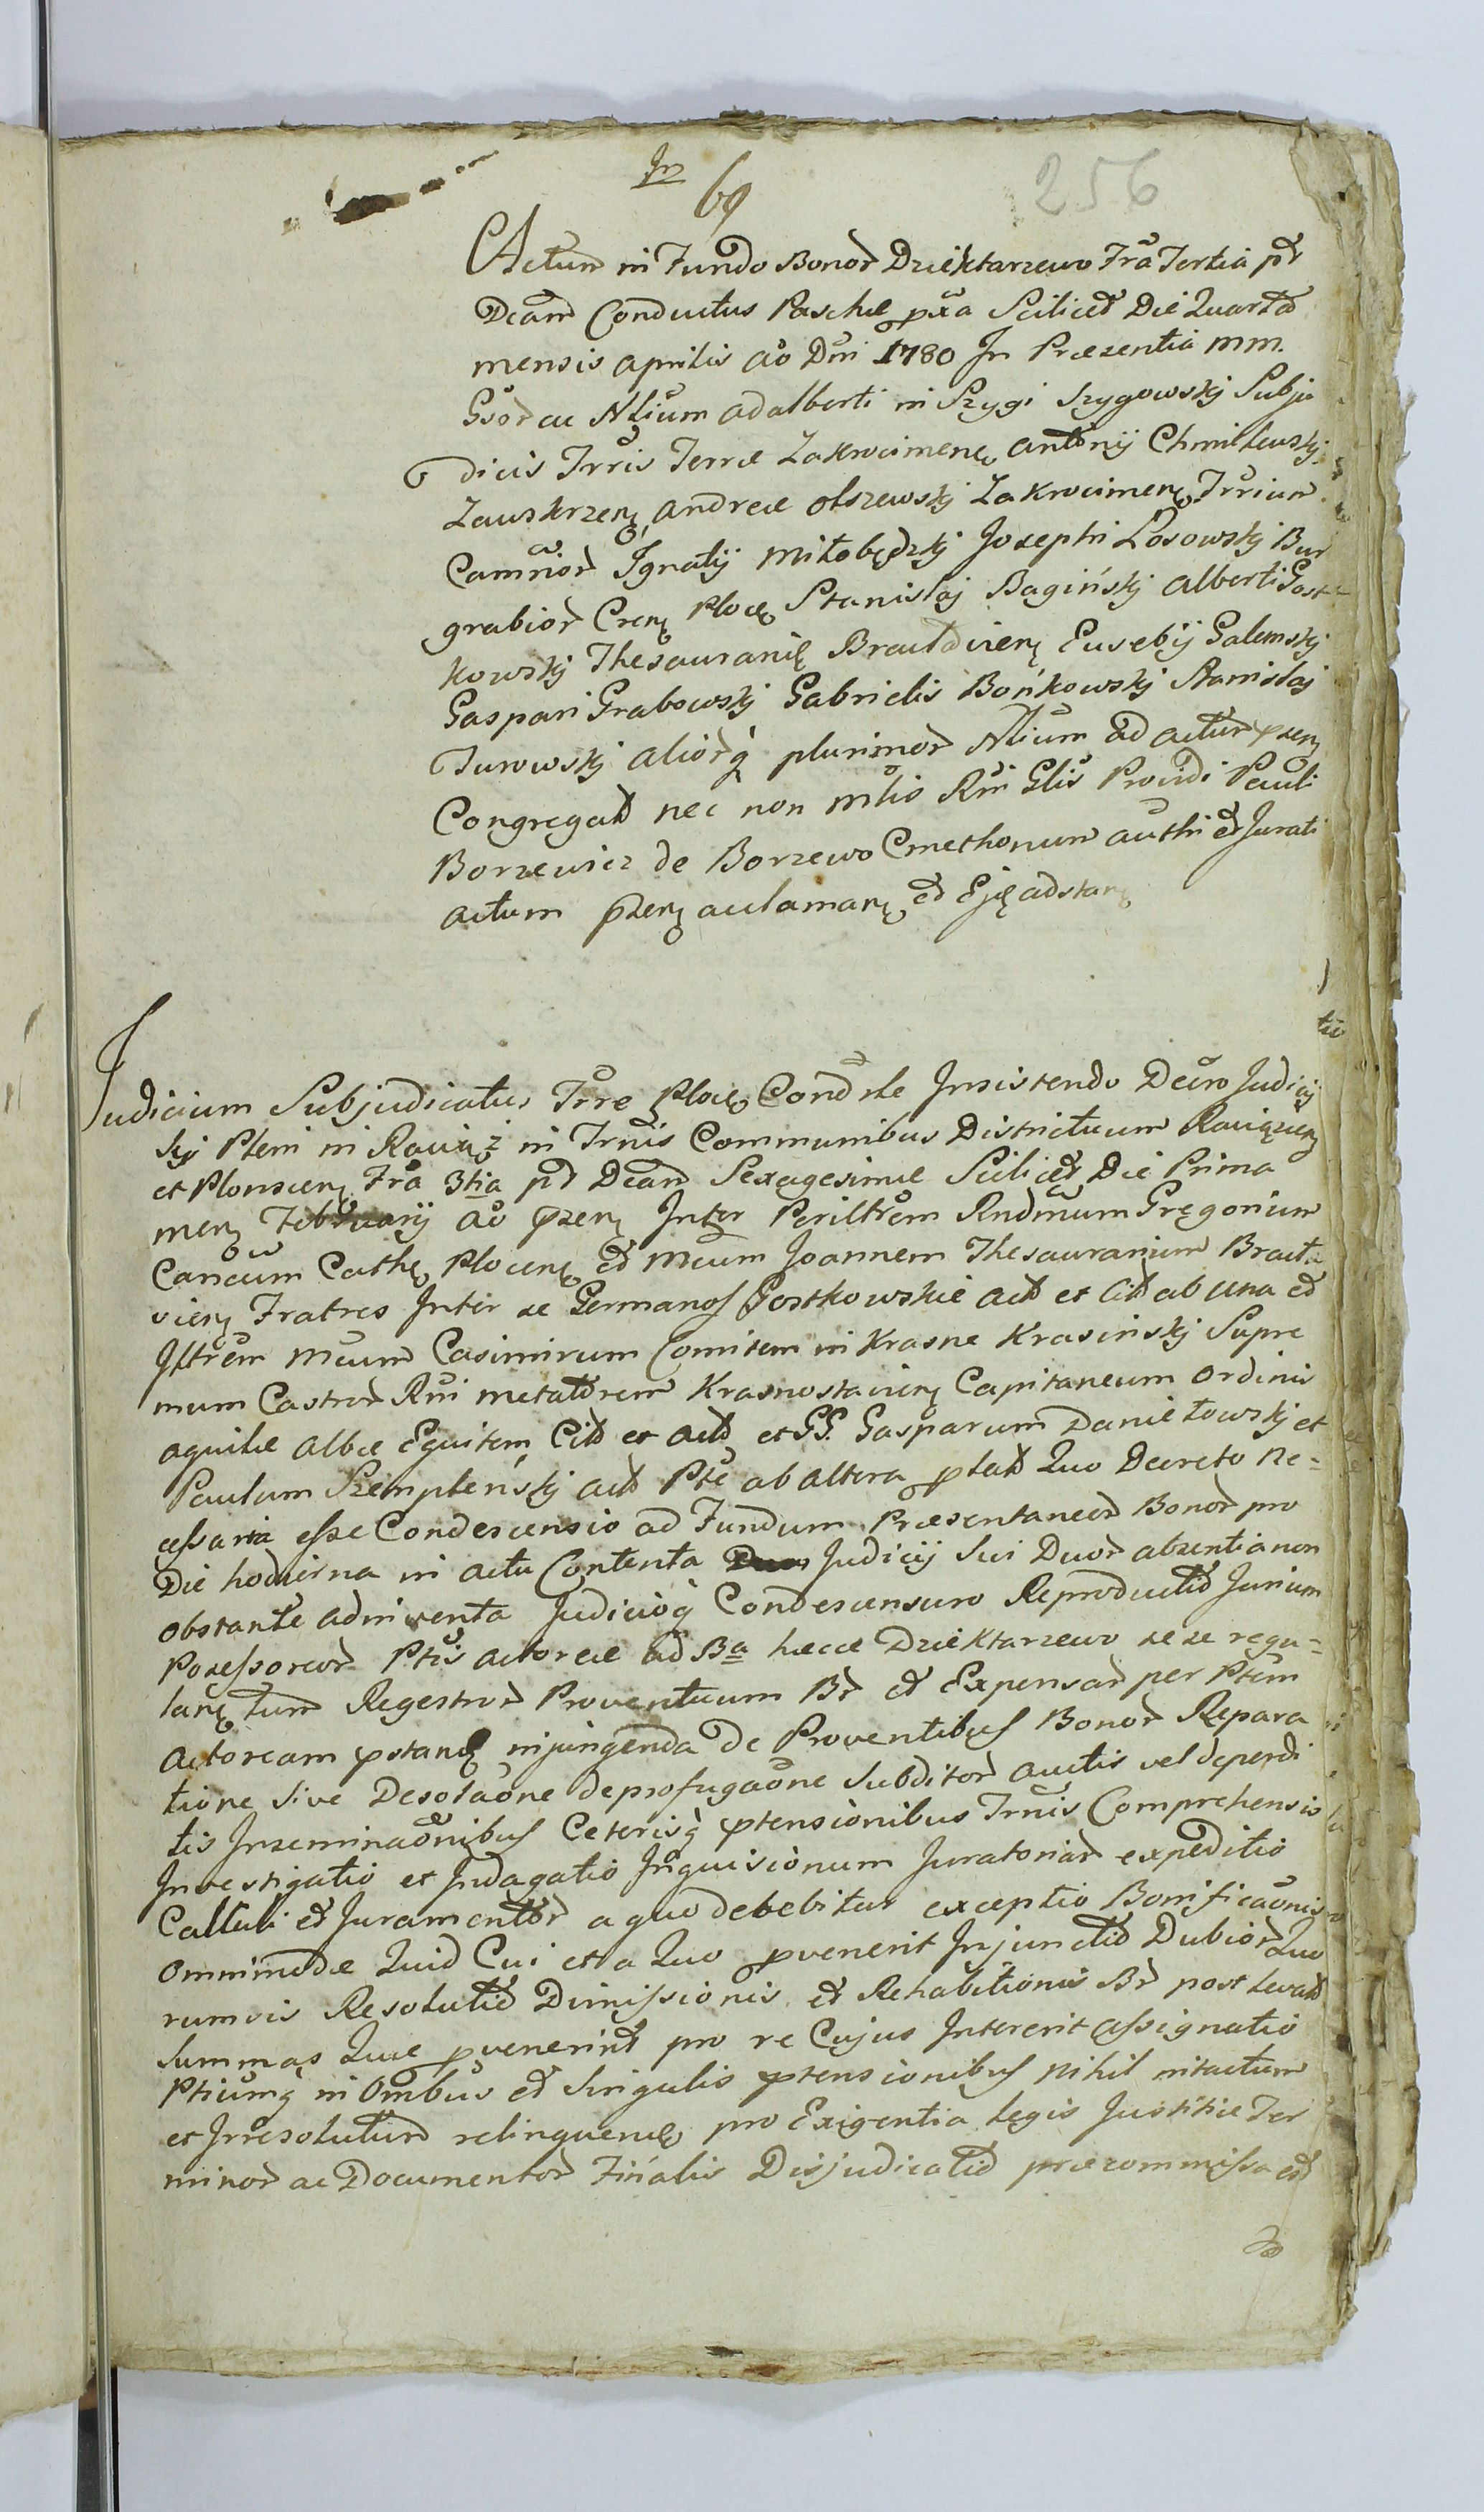 In
69
256
Actum in Fundo Bonor Dziektarzewo Fra Tertia pt
Dcam Conductus Paschæ pxa Scilicet Die Quarta
mensis aprilis ao Dni 1780 In Præsentia mm.
Gsor ac Nlium adalberti in Szygi Szygowskj Subju
dicis Trris Terræ Zakrocimen, Antonij Chmilewskj
Zawskrzen, andreæ olszewskj Zakrocimen, Trrium
Camrior Ignatij miłobędzkj Josephi Łosowskj Bur
grabior Cren, Ploc, Stanislaj Bagińskj alberti Gost
kowskj Thesaurarij Bractavien, Eusebij Galemskj
Gaspari Grabowskj Gabrielis Bońkowskj Stanislaj
Turowskj aliorq plurimor Nlium ad actum pzen,
Congregat nec non mlis Rni Glis Providi Pauli
Borzewicz de Borzewo Cmethonum authi et Jurati
actum pzen, aclaman, et Eję adstan,
Judicium Subjudicatus Trre Ploc, Cond ele Insistendo Decro Judicij
Sij Pleni in Raciąż in Trnis Communibus Districtuum Raciązien,
et Plonscen, Fra 3tia pt Dcam Sexagesimæ Scilicet Die Prima
men, February ao pzen, Inter Periltrem Rndmum Gregorium
Cancum Cathe, Plocen, et mcum Joannem Thesaurarium Bracta
vien, Fratres Inter se Germanos Gostkowskie act et Cit ab una et
Iltrem mcum Casimirum Comitem in Krasne Krasinskj Supre
mum Castror Rni metatorem Krasnostavien, Capitaneum ordinis
aquilæ albæ Equitem Cit et act et GG. Gasparum Daniełowskj et
Paulum Szempleńskj act Pte ab altera plat Quo Decreto ne=
cessaria esse Condescensio ad Fundum Præsentaneor Bonor pro
Die hodierna in actu Contenta Judicij Sui Duor absentia non
obstante adinventa Judicioq Condescensuro Reproductio Jurium
Possessoreor Ptis actoreæ ad Ba hæcce Dziektarzewo se se regu=
lan, tum Regestror Proventuum Br et Expensar per Ptem
actoream pstand injungenda de Proventibus Bonor Repara
tione Sive Desolaone deprofugaone Subditor auctis vel deperdi
tis Inseminaonibus Ceterisq ptensionibus Trnis Comprehensis
Investigatio et Indagatio Inquisionum Juratoriar expeditio
Calculi et Juramentor a quo debebitur exceptio Bonificaonis
omnimodæ Quid Cui et a Quo pvenerit Injunctio Dubior Quo
rumvis Resolutio Dimissionis et Rehabitionis Br post levat
Summas Quæ pvenerint pro re Cujus Intererit assignatio
Ptiumq in Ombus et Singulis ptensionibus nihil intactum
et Irresolutum relinquend, pro Exigentia legis Justitiæ Ter
minor ac Documentor Finalis Disjudicatio præcommissa est